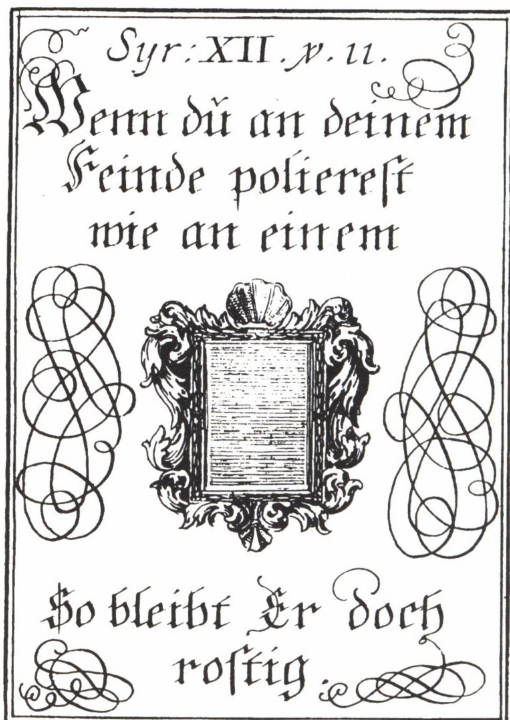 Syr: XII. v. 11.
Wenn dŭ an deinem
Feinde polierest
wie an einem
So bleibt Er doch
rostig.